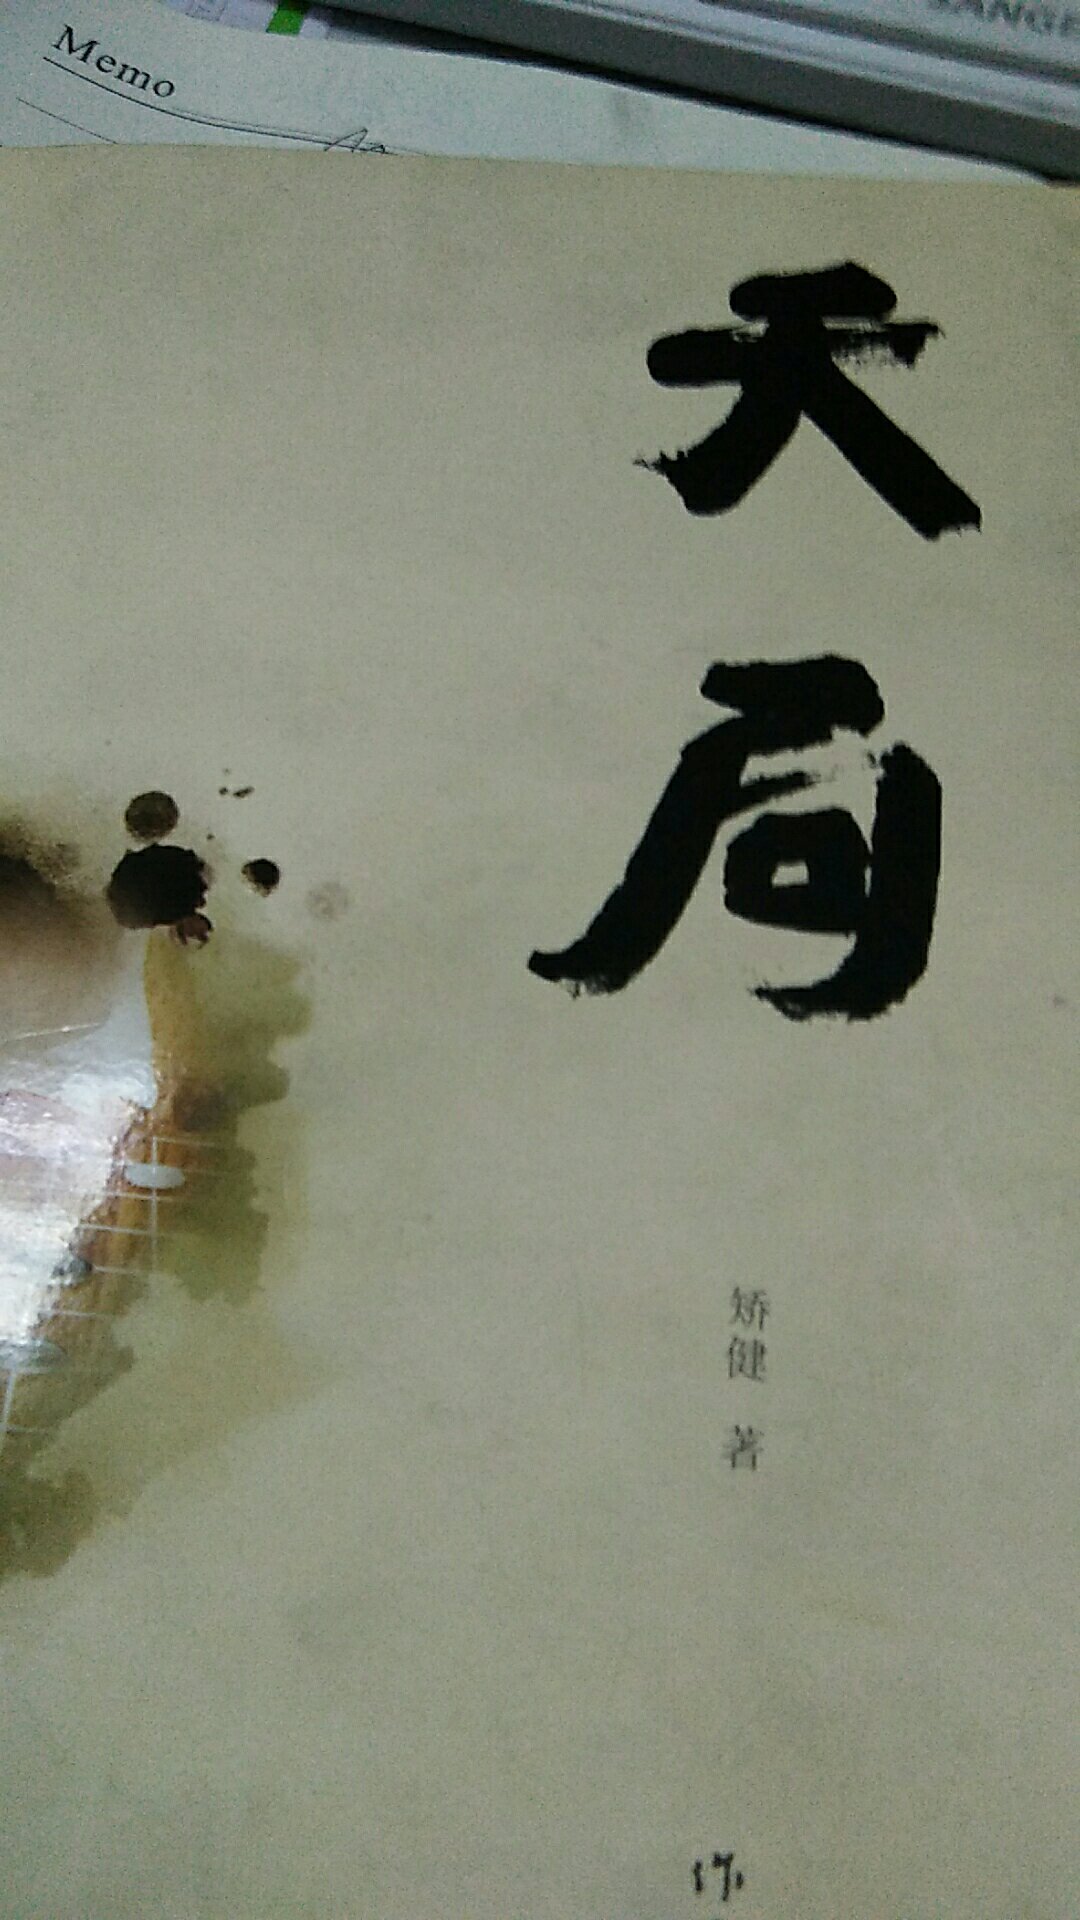 Memo
天局
矫健 著